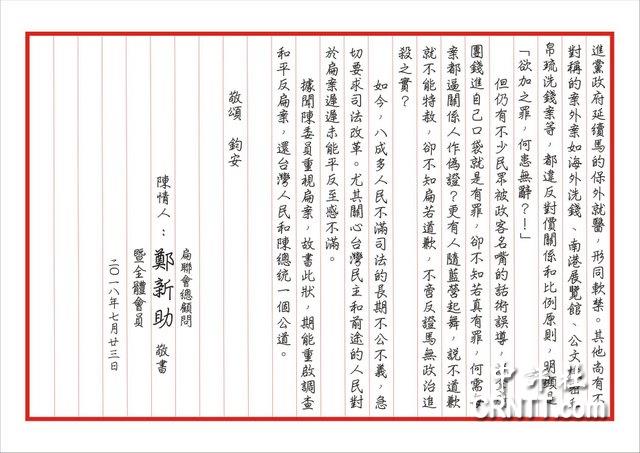 進黨政府延續馬的保外就醫，形同軟禁。其他尚有不
對稱的案外案如海外洗錢、南港展覽館、公文
帛琉洗錢案等，都違反對價關係和比例原則，明顯是
「欲加之罪，何患無辭？！」
但仍有不少民眾被政客名嘴的話術誤導，
團錢進自己口袋就是有罪，卻不知若真有罪，何需
案都逼關係人作偽證？更有人隨藍營起舞，說不道歉
就不能特赦，卻不知扁若道歉，不啻反證馬無政治追
殺之實？
如今，八成多人民不滿司法的長期不公不義，急
切要求司法改革。尤其關心台灣民主和前途的人民對
於扁案遲遲未能平反至感不滿。
據聞陳委員重視扁案，故書此狀，期能重啟調查
和平反扁案，還台灣人民和陳總統一個公道。
敬頌 鈞安
陳情人：
扁聯會總顧問
鄭新助 敬書
暨全體會員
二〇一八年七月廿三日
中評社
CRNTT.com